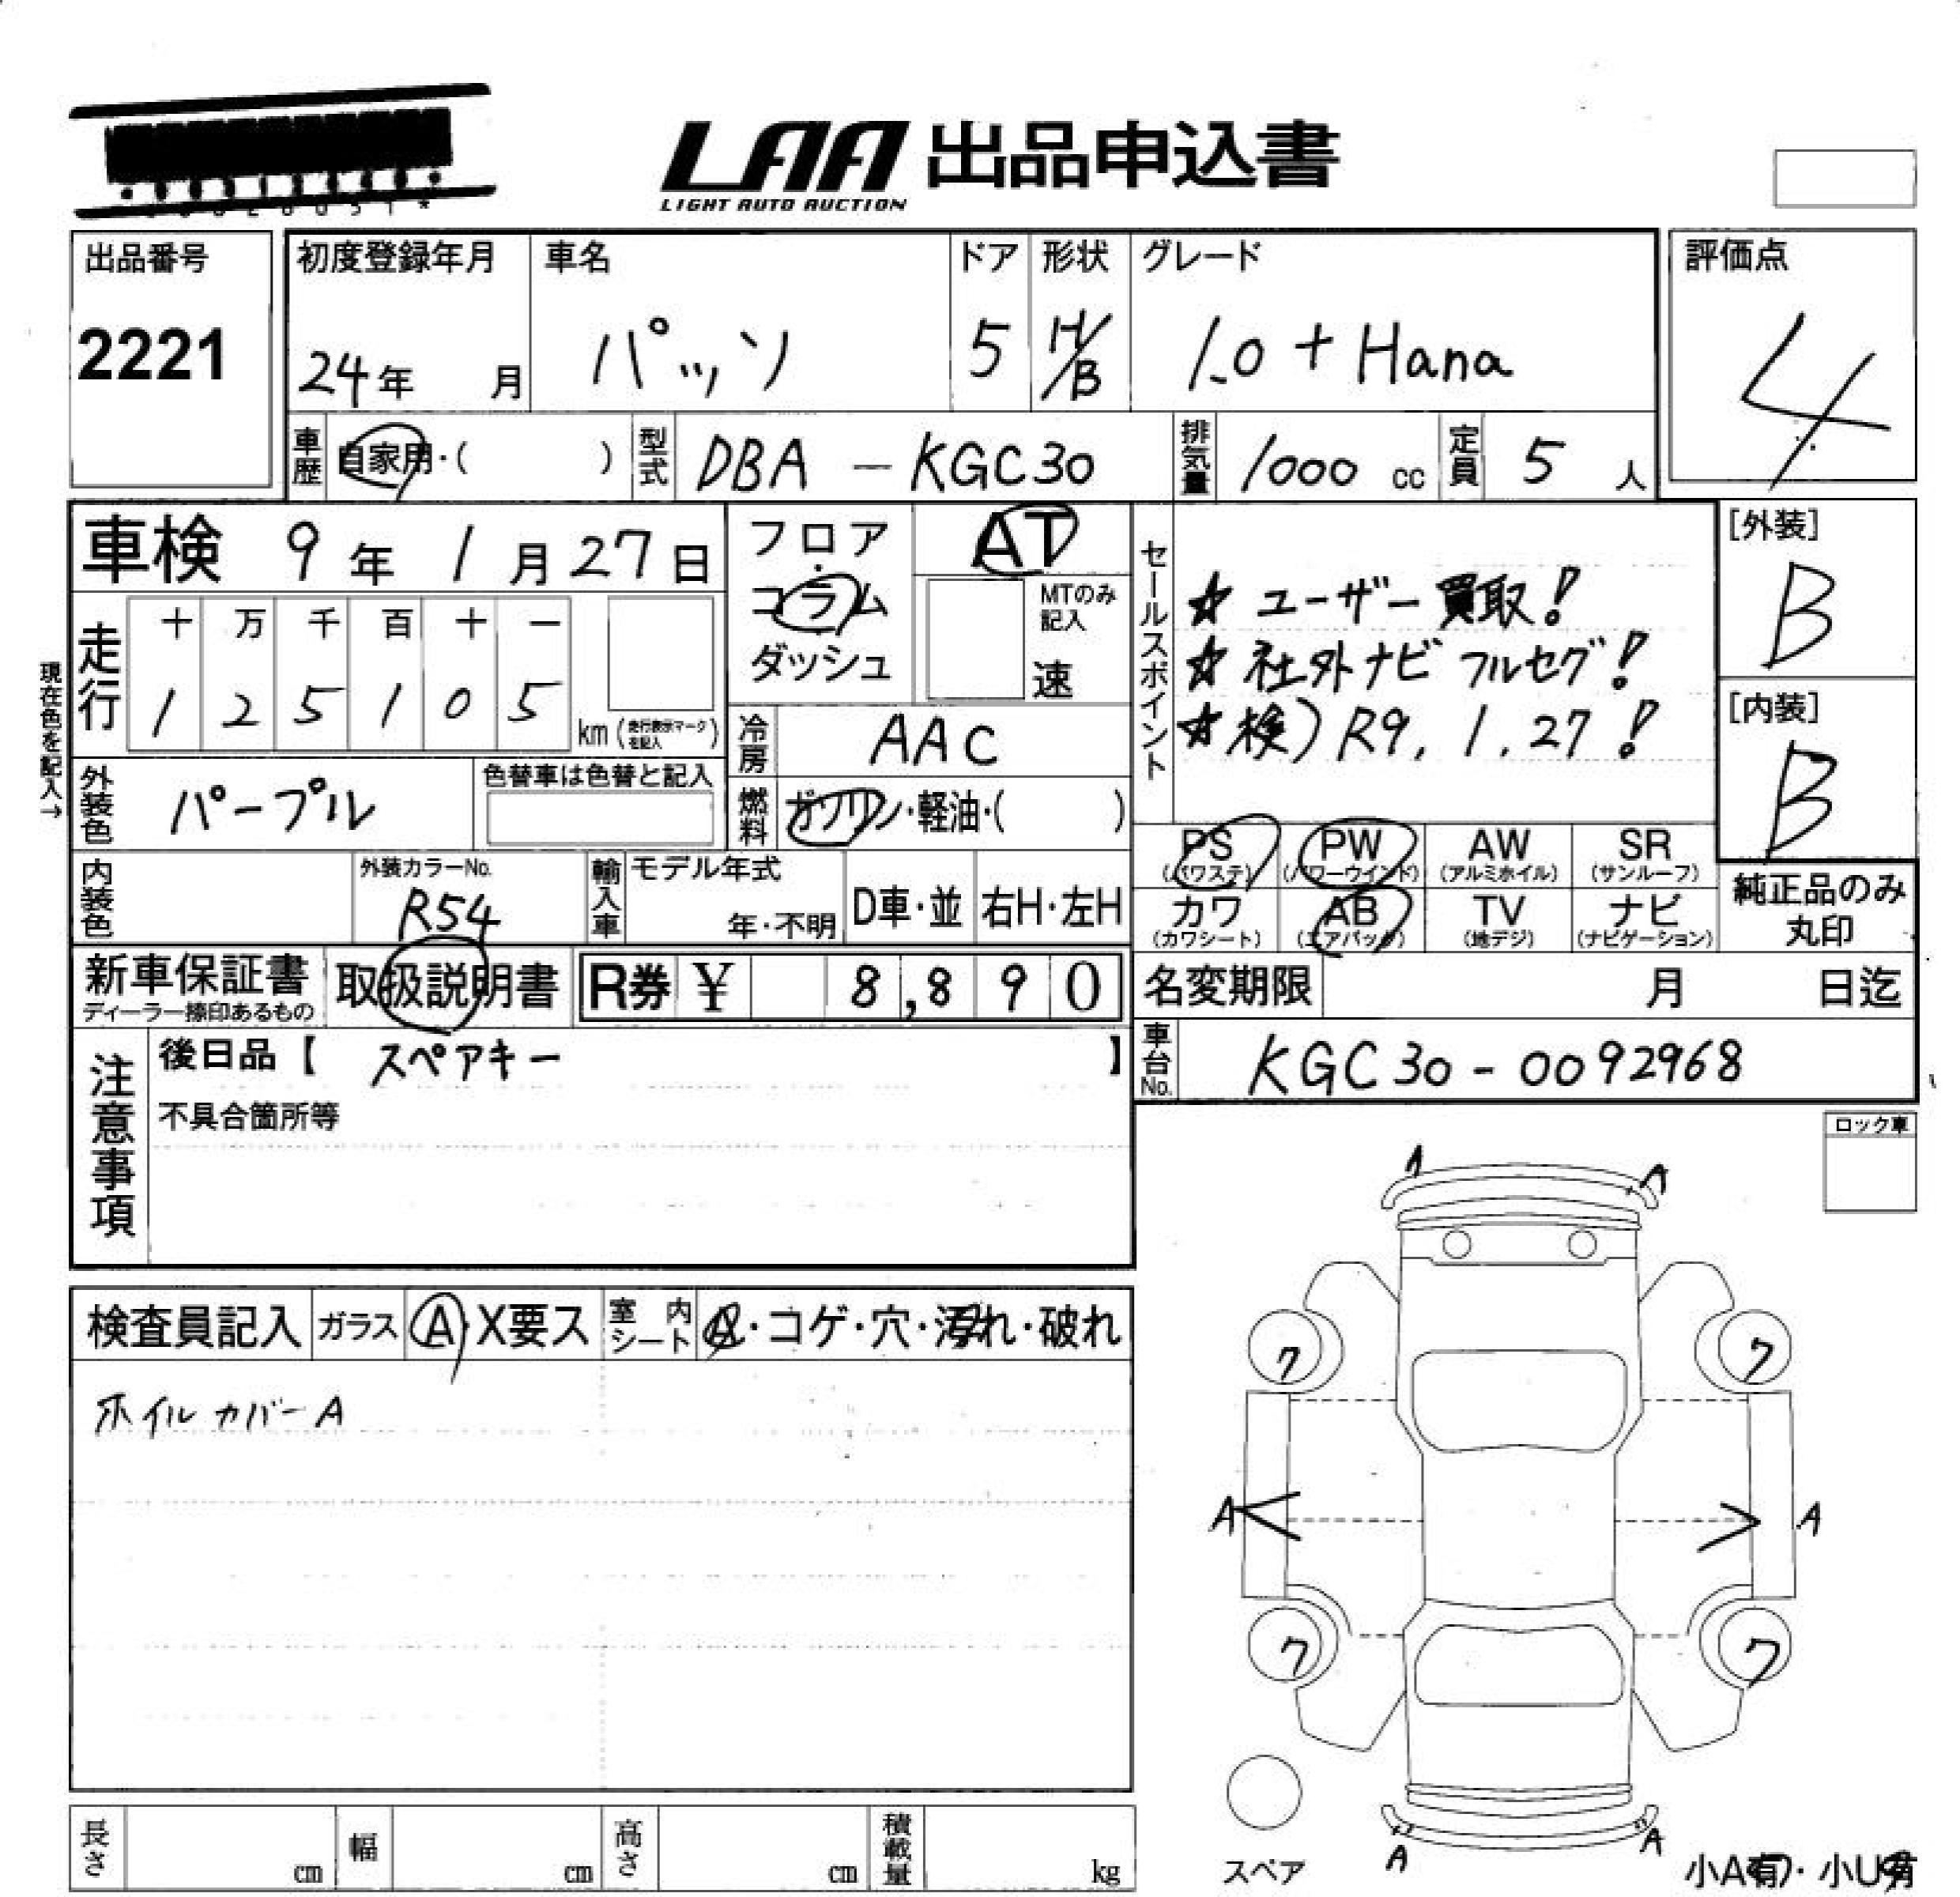 LAA 出品申込書
LIGHT AUTO AUCTION
出品番号
2221
初度登録年月
24年 月
車名
パッソ
ドア
5
形状
H/B
グレード
1.0 + Hana
評価点
4
車歴 自家用・( )
型式 DBA - KGC30
排気量 1000 cc
定員 5 人
車検 9年 1月 27日
フロア・コラム・ダッシュ
AT
MTのみ記入
速
セールスポイント
☆ ユーザー買取!
☆ 社外ナビ フルセグ!
☆ 検) R9. 1. 27!
[外装]
B
[内装]
B
現在色を記入→
走行
十 万 千 百 十 一
1 2 5 1 0 5
km (走行表示マークを記入)
冷房 AAC
外装色 パープル
色替車は色替と記入
燃料 ガソリン・軽油・( )
PS (パワステ)
PW (パワーウインド)
AW (アルミホイル)
SR (サンルーフ)
カワ (カワシート)
AB (エアバック)
TV (地デジ)
ナビ (ナビゲーション)
純正品のみ丸印
内装色
外装カラーNo.
R54
輸入車
モデル年式
年・不明
D車・並
右H・左H
新車保証書
ディーラー捺印あるもの
取扱説明書
R券 ¥ 8,890
名変期限 月 日迄
注意事項
後日品【 スペアキー 】
不具合箇所等
車台No. KGC30-0092968
ロック車
検査員記入
ガラス A・X要ス
室内シート A・コゲ・穴・汚れ・破れ
ホイルカバーA
A A
ワ ワ
A A
ワ ワ
A A
スペア
小A有・小U有
長さ cm
幅 cm
高さ cm
積載量 kg